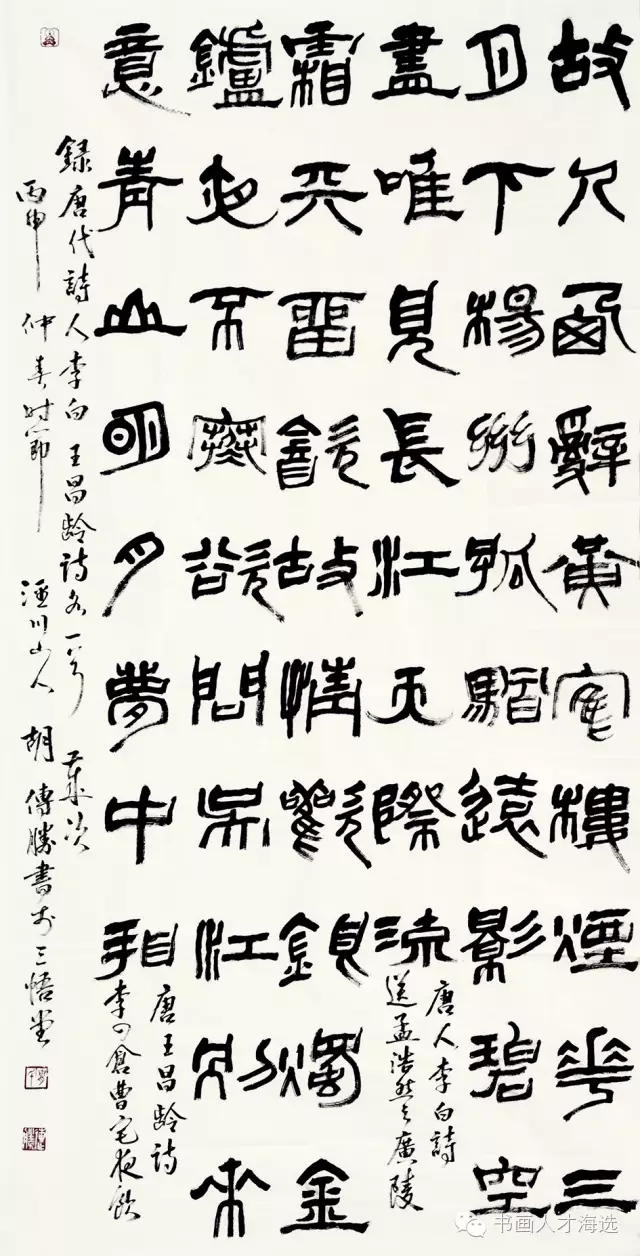 故人西辭黃寉樓煙華三
月下楊州孤颿遠影碧空
盡唯見長江天際流
唐人李白詩
送孟浩然之廣陵
霜天留飲故情歡銀燭金
鑪夜不寒欲問吳江別來
意青山明月夢中看
唐王昌齡詩
李四倉曹宅夜飲
録唐代詩人李白王昌龄诗各一首歲次
丙申仲春时節涇川山人胡傳勝書于三悟堂
书画人才海选